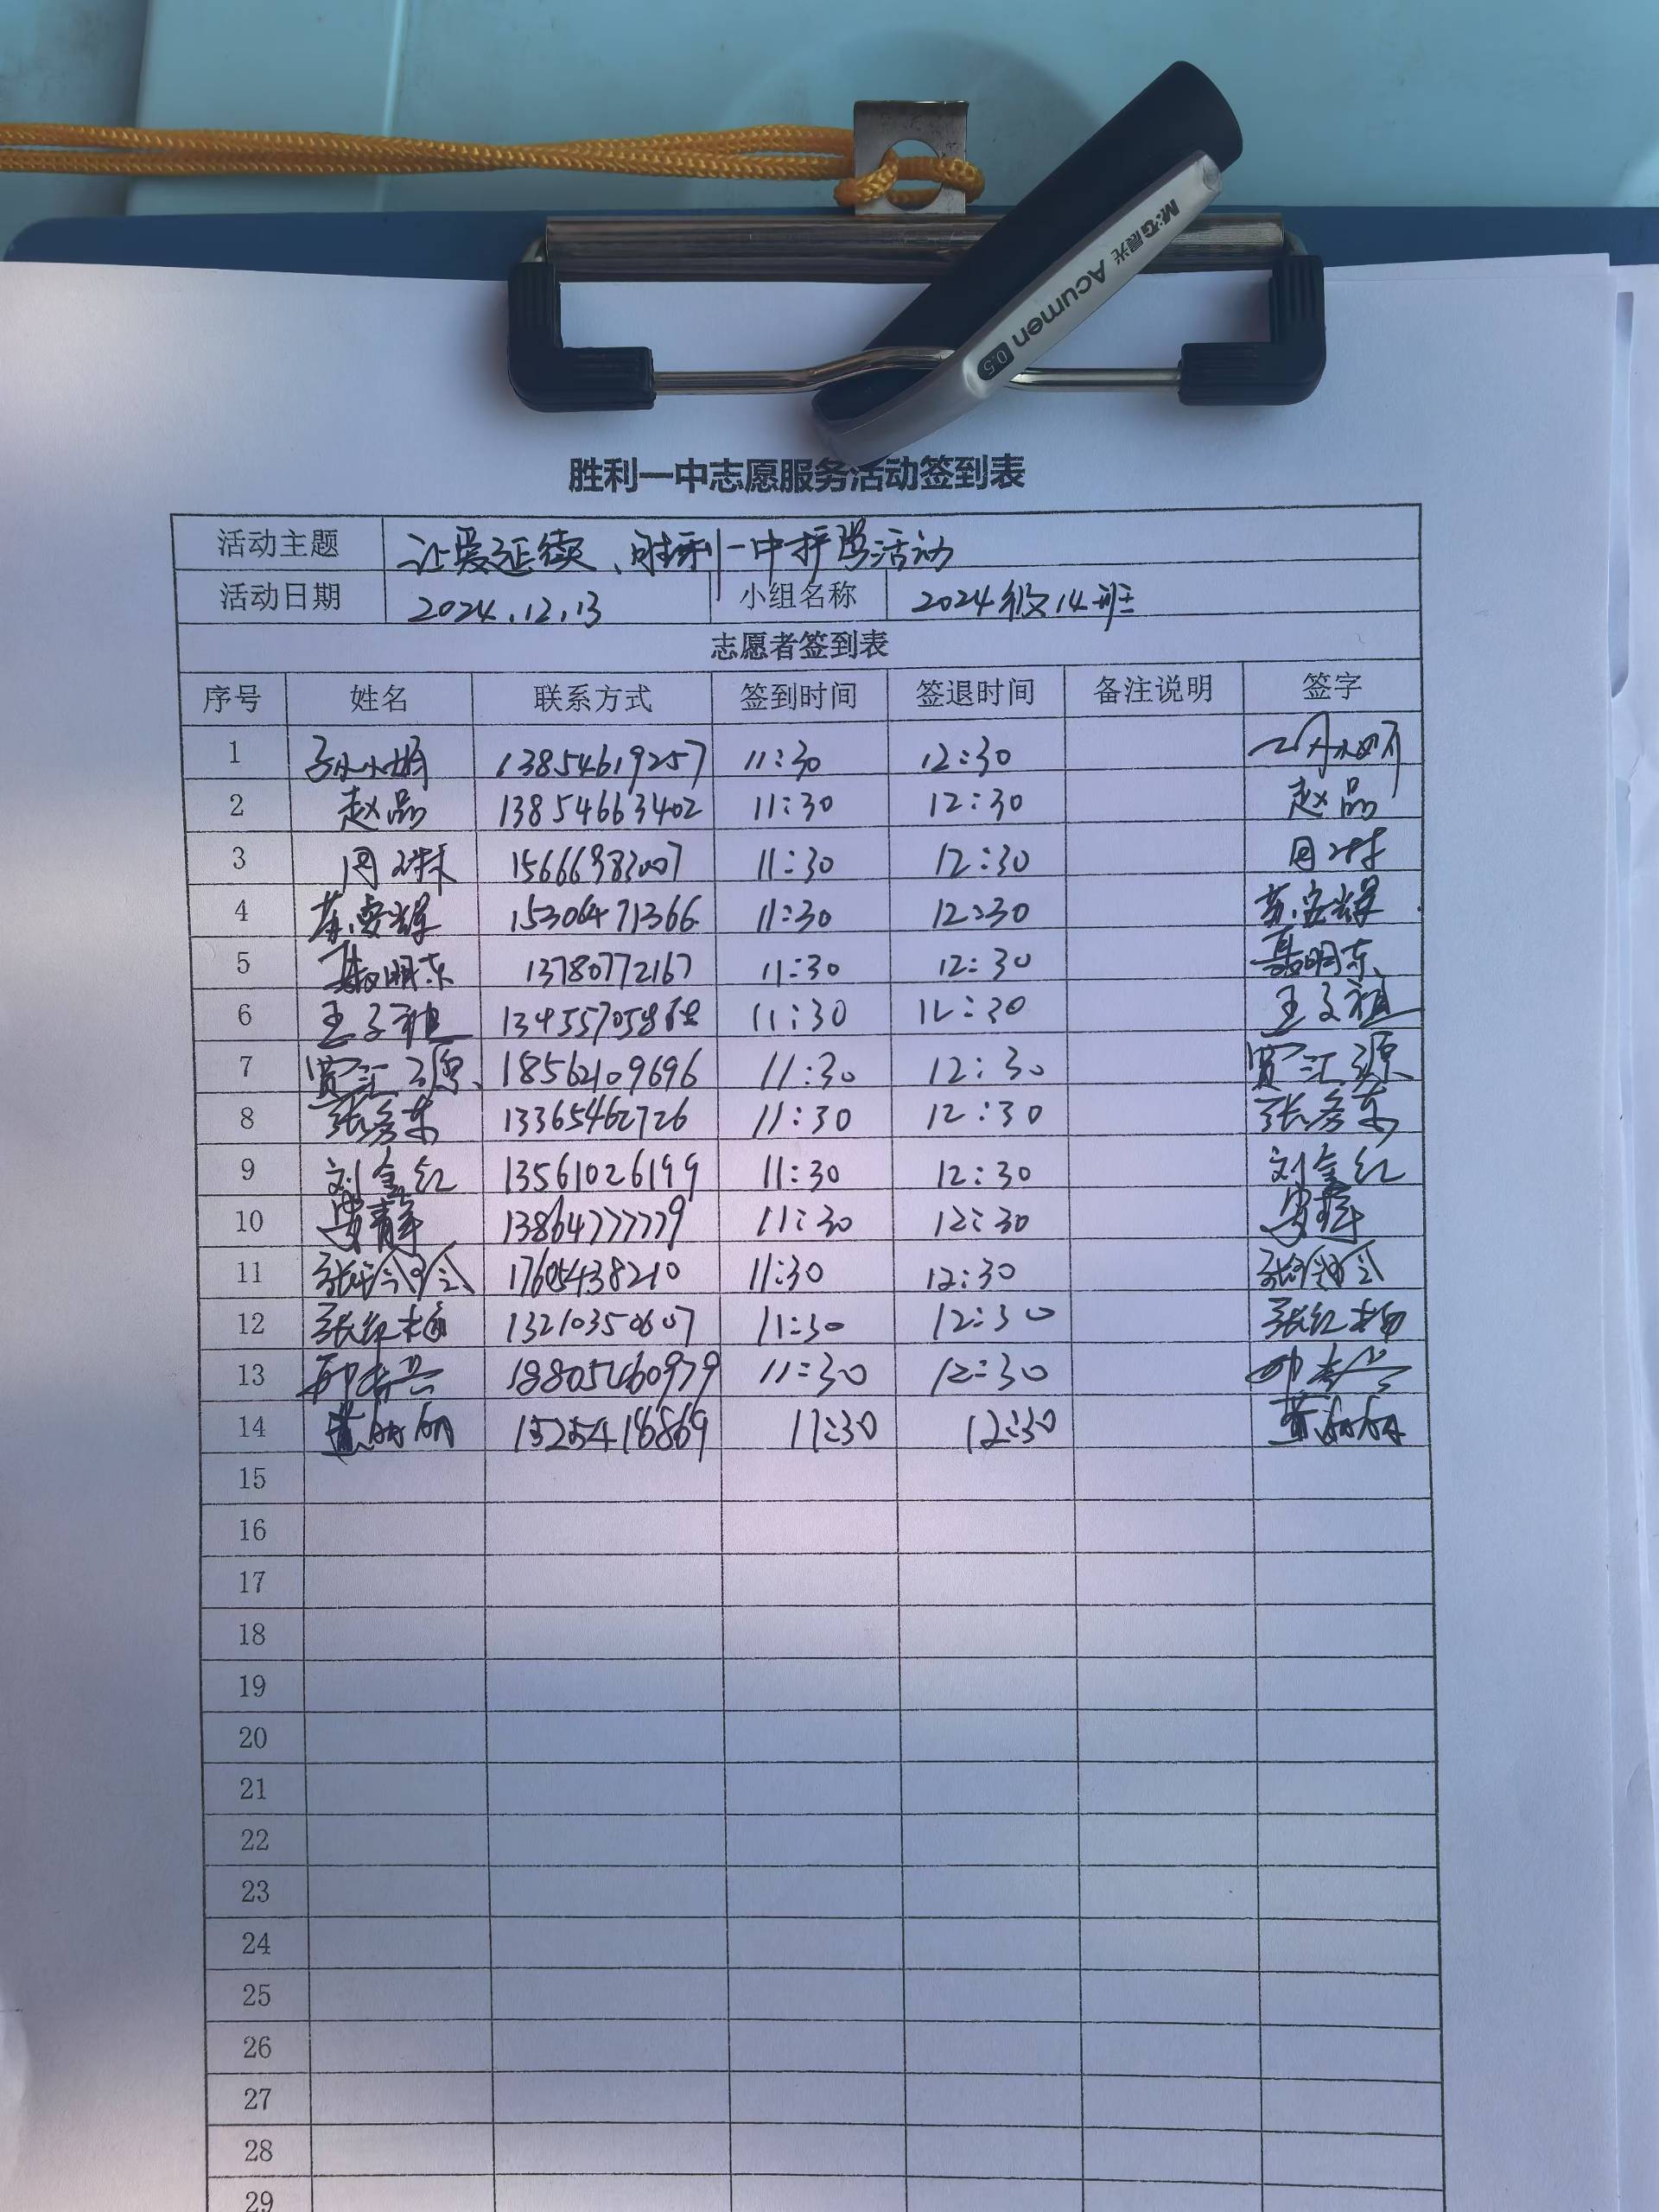 M&G晨光 Acumen 0.5
胜利一中志愿服务活动签到表
活动主题 让爱延续、胜利一中护学活动
活动日期 2024.12.13 小组名称 2024级14班
志愿者签到表
序号 姓名 联系方式 签到时间 签退时间 备注说明 签字
1 孙小娟 13854619257 11:30 12:30
2 赵品 13854663402 11:30 12:30 赵品
3 周 15666983007 11:30 12:30 周
4 15306471366 11:30 12:30
5 聂明东 13780772167 11:30 12:30 聂明东
6 王子祖 11:30 12:30 王子祖
7 贾江源 18562109696 11:30 12:30 贾江源
8 张彦东 13365462726 11:30 12:30 张彦东
9 刘金红 13561026199 11:30 12:30 刘金红
10 安静 13864777779 11:30 12:30 安静
11 张 17605438210 11:30 12:30 张
12 张红梅 13210350607 11:30 12:30 张红梅
13 11:30 12:30
14 董丽丽 11:30 12:30 董丽丽
15
16
17
18
19
20
21
22
23
24
25
26
27
28
29